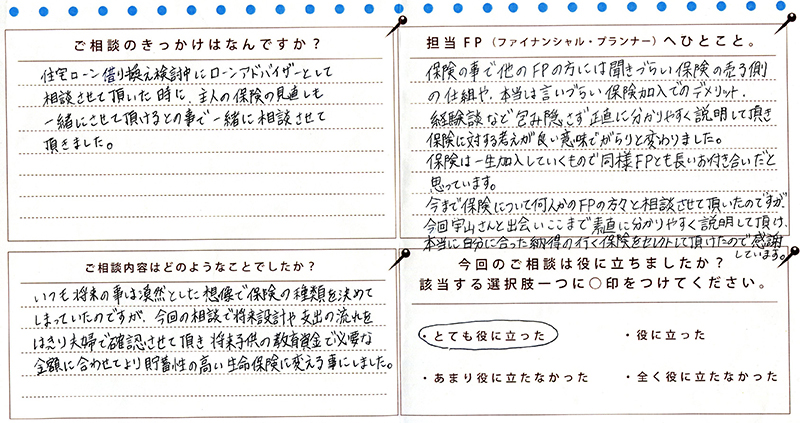 ご相談のきっかけはなんですか？
住宅ローン借り換え検討中にローンアドバイザーとして
相談させて頂いた時に、主人の保険の見直しも
一緒にさせて頂けるとの事で一緒に相談させて
頂きました。
担当FP（ファイナンシャル・プランナー）へひとこと。
保険の事で他のFPの方には聞きづらい保険の売る側
の仕組や、本当は言いづらい保険加入でのデメリット、
経験談など包み隠さず正直に分かりやすく説明して頂き
保険に対する考えが良い意味でがらりと変わりました。
保険は一生加入していくもので同様FPとも長いお付き合いだと
思っています。
今まで保険について何人かのFPの方々と相談させて頂いたのですが、
今回宇山さんと出会いここまで素直に分かりやすく説明して頂け、
本当に自分に合った納得の行く保険をセレクトして頂けたので感謝
しています。
ご相談内容はどのようなことでしたか？
いつも将来の事は漠然とした想像で保険の種類を決めて
しまっていたのですが、今回の相談で将来設計や支出の流れを
はっきり夫婦で確認させて頂き将来子供の教育資金で必要な
金額に合わせてより貯蓄性の高い生命保険に変える事にしました。
今回のご相談は役に立ちましたか？
該当する選択肢一つに○印をつけてください。
・とても役に立った ・役に立った
・あまり役に立たなかった ・全く役に立たなかった